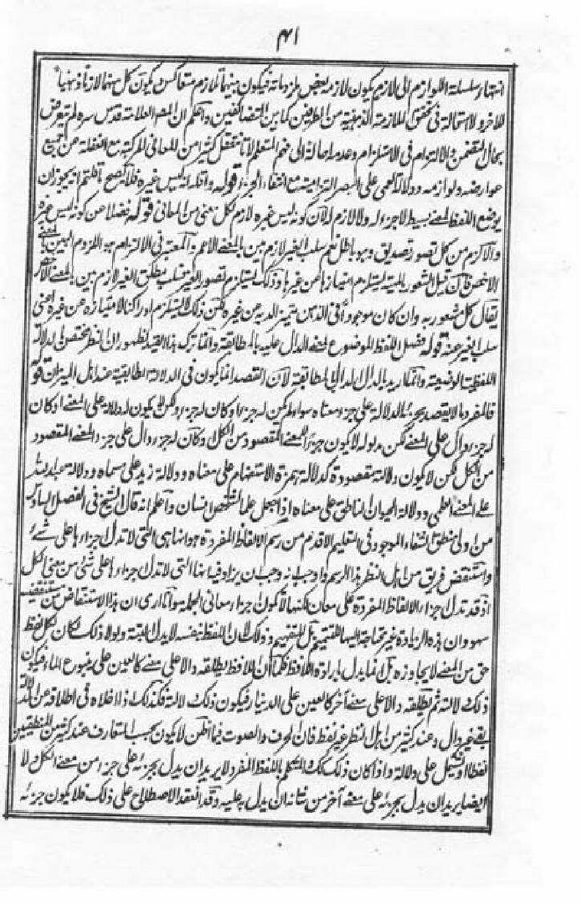 ٤١
انتهاء سلسلة اللوازم الى لازم يكون لازمه بعض ملزوماته فيكون بينهما تلازم متعاكس ويكون كل منهما لازما ذهنيا
للآخر ولا استحالة في تحقق الملازمة الذهنية من الطرفين كما بين المتضائفين واعلم ان المصنف العلامة قدس سره لم يتعرض
بحال التضمن والالتزام في الاستلزام وعدمه احالة الى فهم المتعلم لانا نتعقل كثيرا من المعاني المركبة مع الغفلة عن جميع
عوارضه ولوازمه ودلالة العمى على البصر التزامية مع انتفاء الجزء قوله واقله انه ليس غيره فلا يصح باطل بجواز ان
يوضع اللفظ لمعنى بسيط لا جزء له ولا لازم لان كونه ليس غيره لازم لكل معنى من المعاني قوله فضلا عن كونه ليس غيره
والا لزم من كل تصور تصديق وهو باطل نعم سلب الغير لازم بين بالمعنى الاعم والمعتبر في الالتزام هو اللزوم البين بالمعنى
الاخص فان قيل الشعور بالمهية يستلزم امتيازها عن غيرها وذلك يستلزم تصور الغير فسلب مطلق الغير لازم بين بالمعنى الاخص
يقال كل مشعور به وان كان موجودا في الذهن متميزا لديه عن غيره لكن ذلك لا يستلزم ادراكنا لامتيازه عن غيره حتى
سلب الغير عنه قوله فصل اللفظ الموضوع لمعنى الدال عليه بالمطابقة وانما ترك هذا القيد لظهور ان النظر مختص بالدلالة
اللفظية الوضعية وانما زيد الدال بالمطابقة لان القصد انما يكون في الدلالة المطابقية عند اهل الميزان قوله
فالمفرد ما لا يقصد بجزئه الدلالة على جزء معناه سواء لم يكن له جزء او كان له جزء ولكن لم يكون له دلالة على المعنى او كان
له جزء دال على المعنى لكن مدلوله لا يكون جزءا للمعنى المقصود من الكل او كان له جزء دال على جزء المعنى المقصود
من الكل لكن لا يكون دلالة مقصودة كدلالة همزة الاستفهام على معناه ودلالة زيد على مسماه ودلالة عبد الله
على المعنى العلمي ودلالة الحيوان الناطق على معناه اذا جعل علما لشخص انسان واعلم انه قال الشيخ في الفصل السابع
من اولى منطق الشفاء الموجود في التعليم الاقدم من رسم الالفاظ المفردة هو انها هي التي لا تدل اجزاؤها على شيء
واستنقص فريق من اهل النظر هذا الرسم واوجب انه يجب ان يزاد فيه انها التي لا تدل اجزاؤها على شيء من معنى الكل
اذ قد تدل اجزاء الالفاظ المفردة على معان لكنها لا تكون اجزاء معاني الجملة وانا ارى ان هذا الاستنقاص من مستنقصيه
سهو وان هذه الزيادة غير محتاجة اليها للتتميم بل للتفهيم وذلك ان اللفظ بنفسه لا يدل البتة ولولا ذلك لكان لكل لفظ
حق من المعنى لا يجاوزه بل انما يدل بارادة اللافظ فكما ان اللافظ يطلقه دالا على معنى كالعين على ينبوع الماء فيكون
ذلك دلالته ثم يطلقه دالا على معنى آخر كالعين على الدينار فيكون ذلك دلالته كذلك اذا اخلاه في اطلاقه عن الدلالة
بقي غير دال وعند كثير من اهل النظر غير لفظ فان الحرف والصوت فيما اظن لا يكون بحسب التعارف عند كثير من المنطقيين
لفظا او يشتمل على دلالة واذا كان ذلك كذلك فالمتكلم باللفظ المفرد لا يريد ان يدل بجزئه على جزء من معنى الكل ولا
ايضا يريد ان يدل بجزئه على معنى آخر من شانه ان يدل به عليه وقد انعقد الاصطلاح على ذلك فلا يكون جزئه